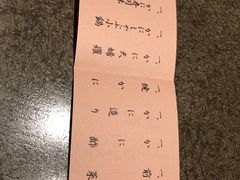 一、前菜
一、かに酢
一、かに造り
一、焼かに
一、かに天婦羅
一、かにしゃぶ小鍋
一、かに寿司